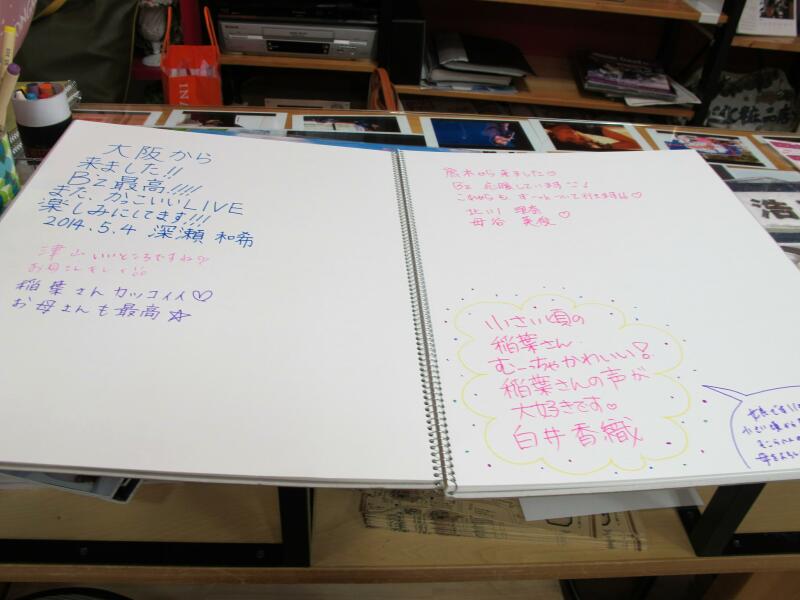 大阪から
来ました!!
B'z 最高!!!!
また、カッコいいLIVE
楽しみにしてます!!!
2014.5.4 深瀬 和希
津山いいところですね
お母さんキレイ
稲葉さんカッコイイ♡
お母さんも最高☆
から来ました♡
B'z 応援しています
これからもずーっとついて行きます!!♡
北川
♡
小さい頃の
稲葉さん
むーっちゃかわいい!
稲葉さんの声が
大好きです♡
白井香織
小さい頃から
浩